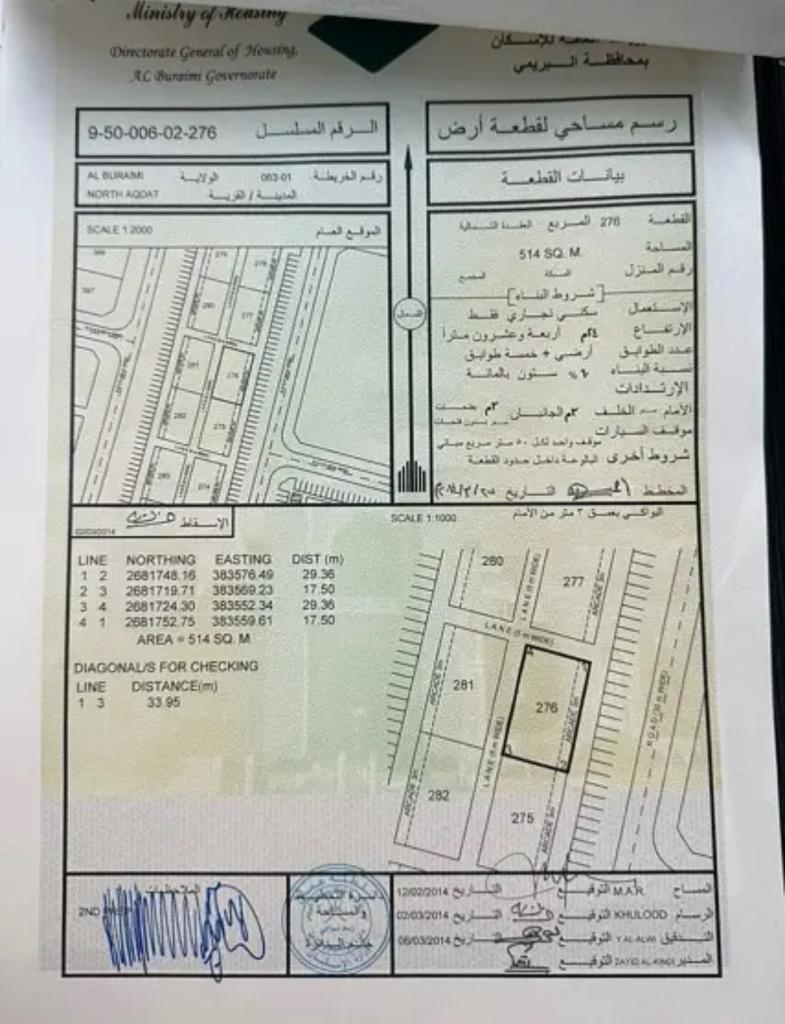 Ministry of Housing
Directorate General of Housing,
AL Buraimi Governorate
للإسكان
بمحافظة البريمي
9-50-006-02-276 الرقم المسلسل
رسم مساحي لقطعة أرض
AL BURAIMI الولاية 063-01 رقم الخريطة
NORTH AQDAT المدينة / القرية
بيانات القطعة
SCALE 1:2000 الموقع العام
القطعة 276 المربع العقدة الشمالية
المساحة 514 SQ. M.
رقم المنزل السكة المجمع
[شروط البناء]
الإستعمال سكني تجاري فقط
الإرتفاع ٢٤م أربعة وعشرون متراً
عدد الطوابق أرضي + خمسة طوابق
نسبة البناء ٦٠% ستون بالمائة
الإرتدادات
الأمام الخلف ٣م الجانبان ٣م بفتحات
بدون فتحات
موقف السيارات
موقف واحد لكل ٥٠ متر مربع مباني
شروط أخرى البالوعة داخل حدود القطعة
المخطط التاريخ
البواكي بعمق ٣ متر من الأمام
الشمال
397
280
277
281
276
282
275
283
274
الاسقاط
02/03/2014
SCALE 1:1000
LINE NORTHING EASTING DIST (m)
1 2 2681748.16 383576.49 29.36
2 3 2681719.71 383569.23 17.50
3 4 2681724.30 383552.34 29.36
4 1 2681752.75 383559.61 17.50
AREA = 514 SQ. M.
DIAGONAL/S FOR CHECKING
LINE DISTANCE(m)
1 3 33.95
280
277
LANE (6 m WIDE)
ARCADE 3m
LANE (5 m WIDE)
281
ARCADE 3m
276
ARCADE 3m
LANE (6 m WIDE)
282
ARCADE 3m
275
ARCADE 3m
ROAD (30 m WIDE)
الملاحظات
2ND
دائرة التخطيط
والمساحة
المساح M.A.R. التوقيع التاريخ 12/02/2014
الرسام KHULOOD التوقيع التاريخ 02/03/2014
التدقيق Y.AL-ALWI التوقيع التاريخ 06/03/2014
المدير ZAYID AL-KINDI التوقيع